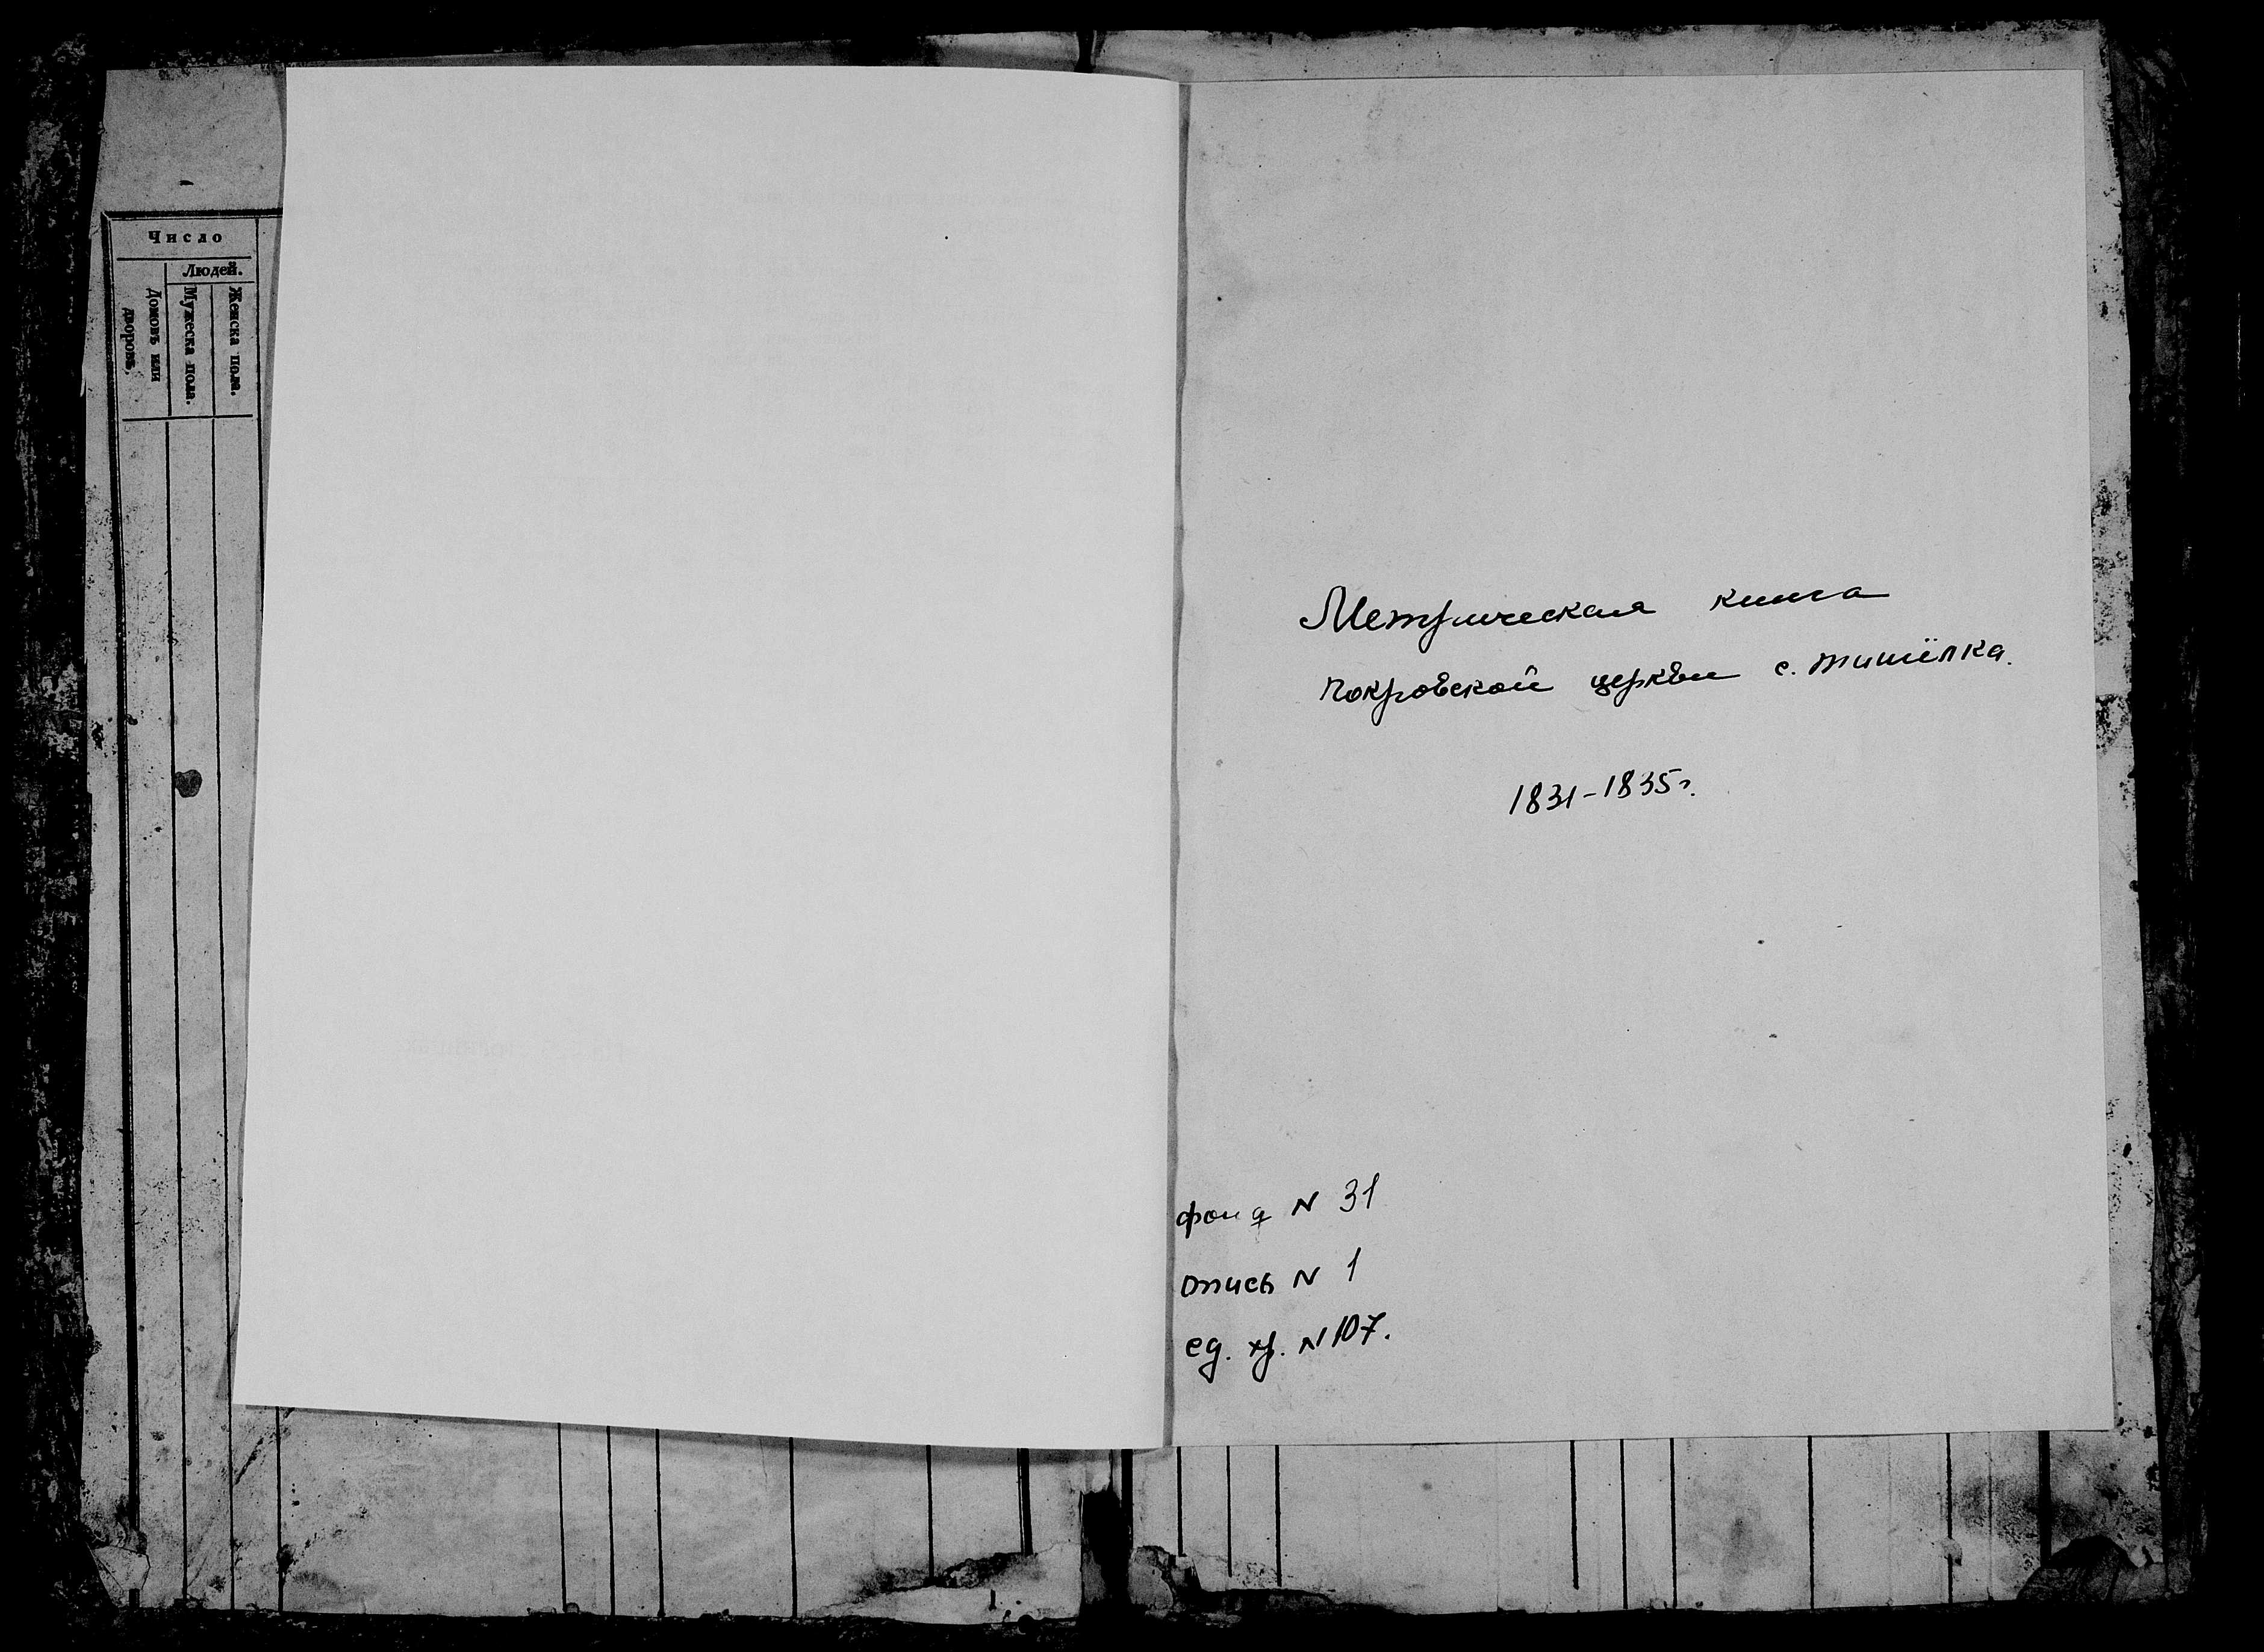 Число
Людей.
Домовъ или дворовъ.
Мужеска пола.
Женска пола.
Метрическая книга
Покровской церкви с. Тишёлка.
1831-1835г.
фонд N 31
опись N 1
ед. хр. N 107.